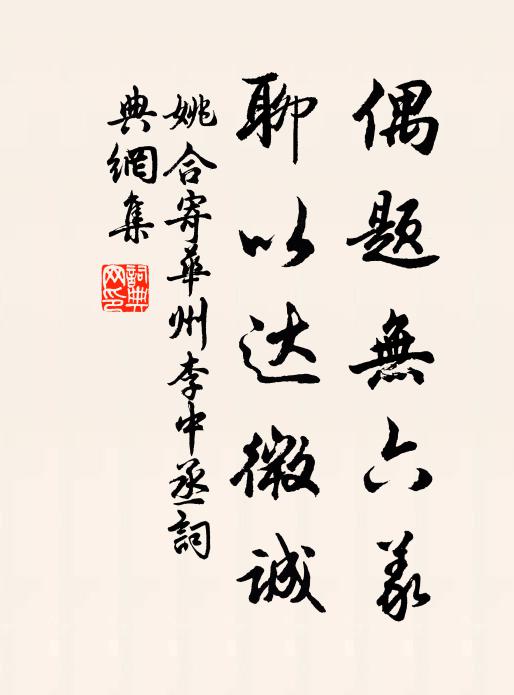 偶题無六義
聊以达微誠
姚合寄華州李中丞詞
典網集
詞典网印